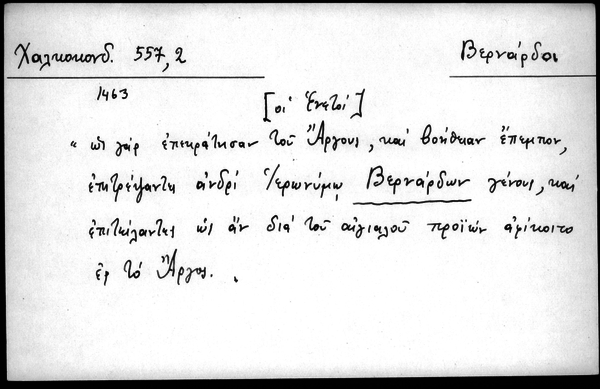 Χαλκοκονδ. 557,2
Βερνάρδοι
1463
[οἱ Ἐνετοί]
“ ὡς γὰρ ἐπεκράτησαν τοῦ Ἄργους, καὶ βοήθειαν ἔπεμπον,
ἐπιτρέψαντες ἀνδρὶ Ἱερωνύμῳ Βερνάρδων γένους, καὶ
ἐπιτείλαντες ὡς ἂν διὰ τοῦ αἰγιαλοῦ προϊὼν ἀφίκοιτο
ἐς τὸ Ἄργος.